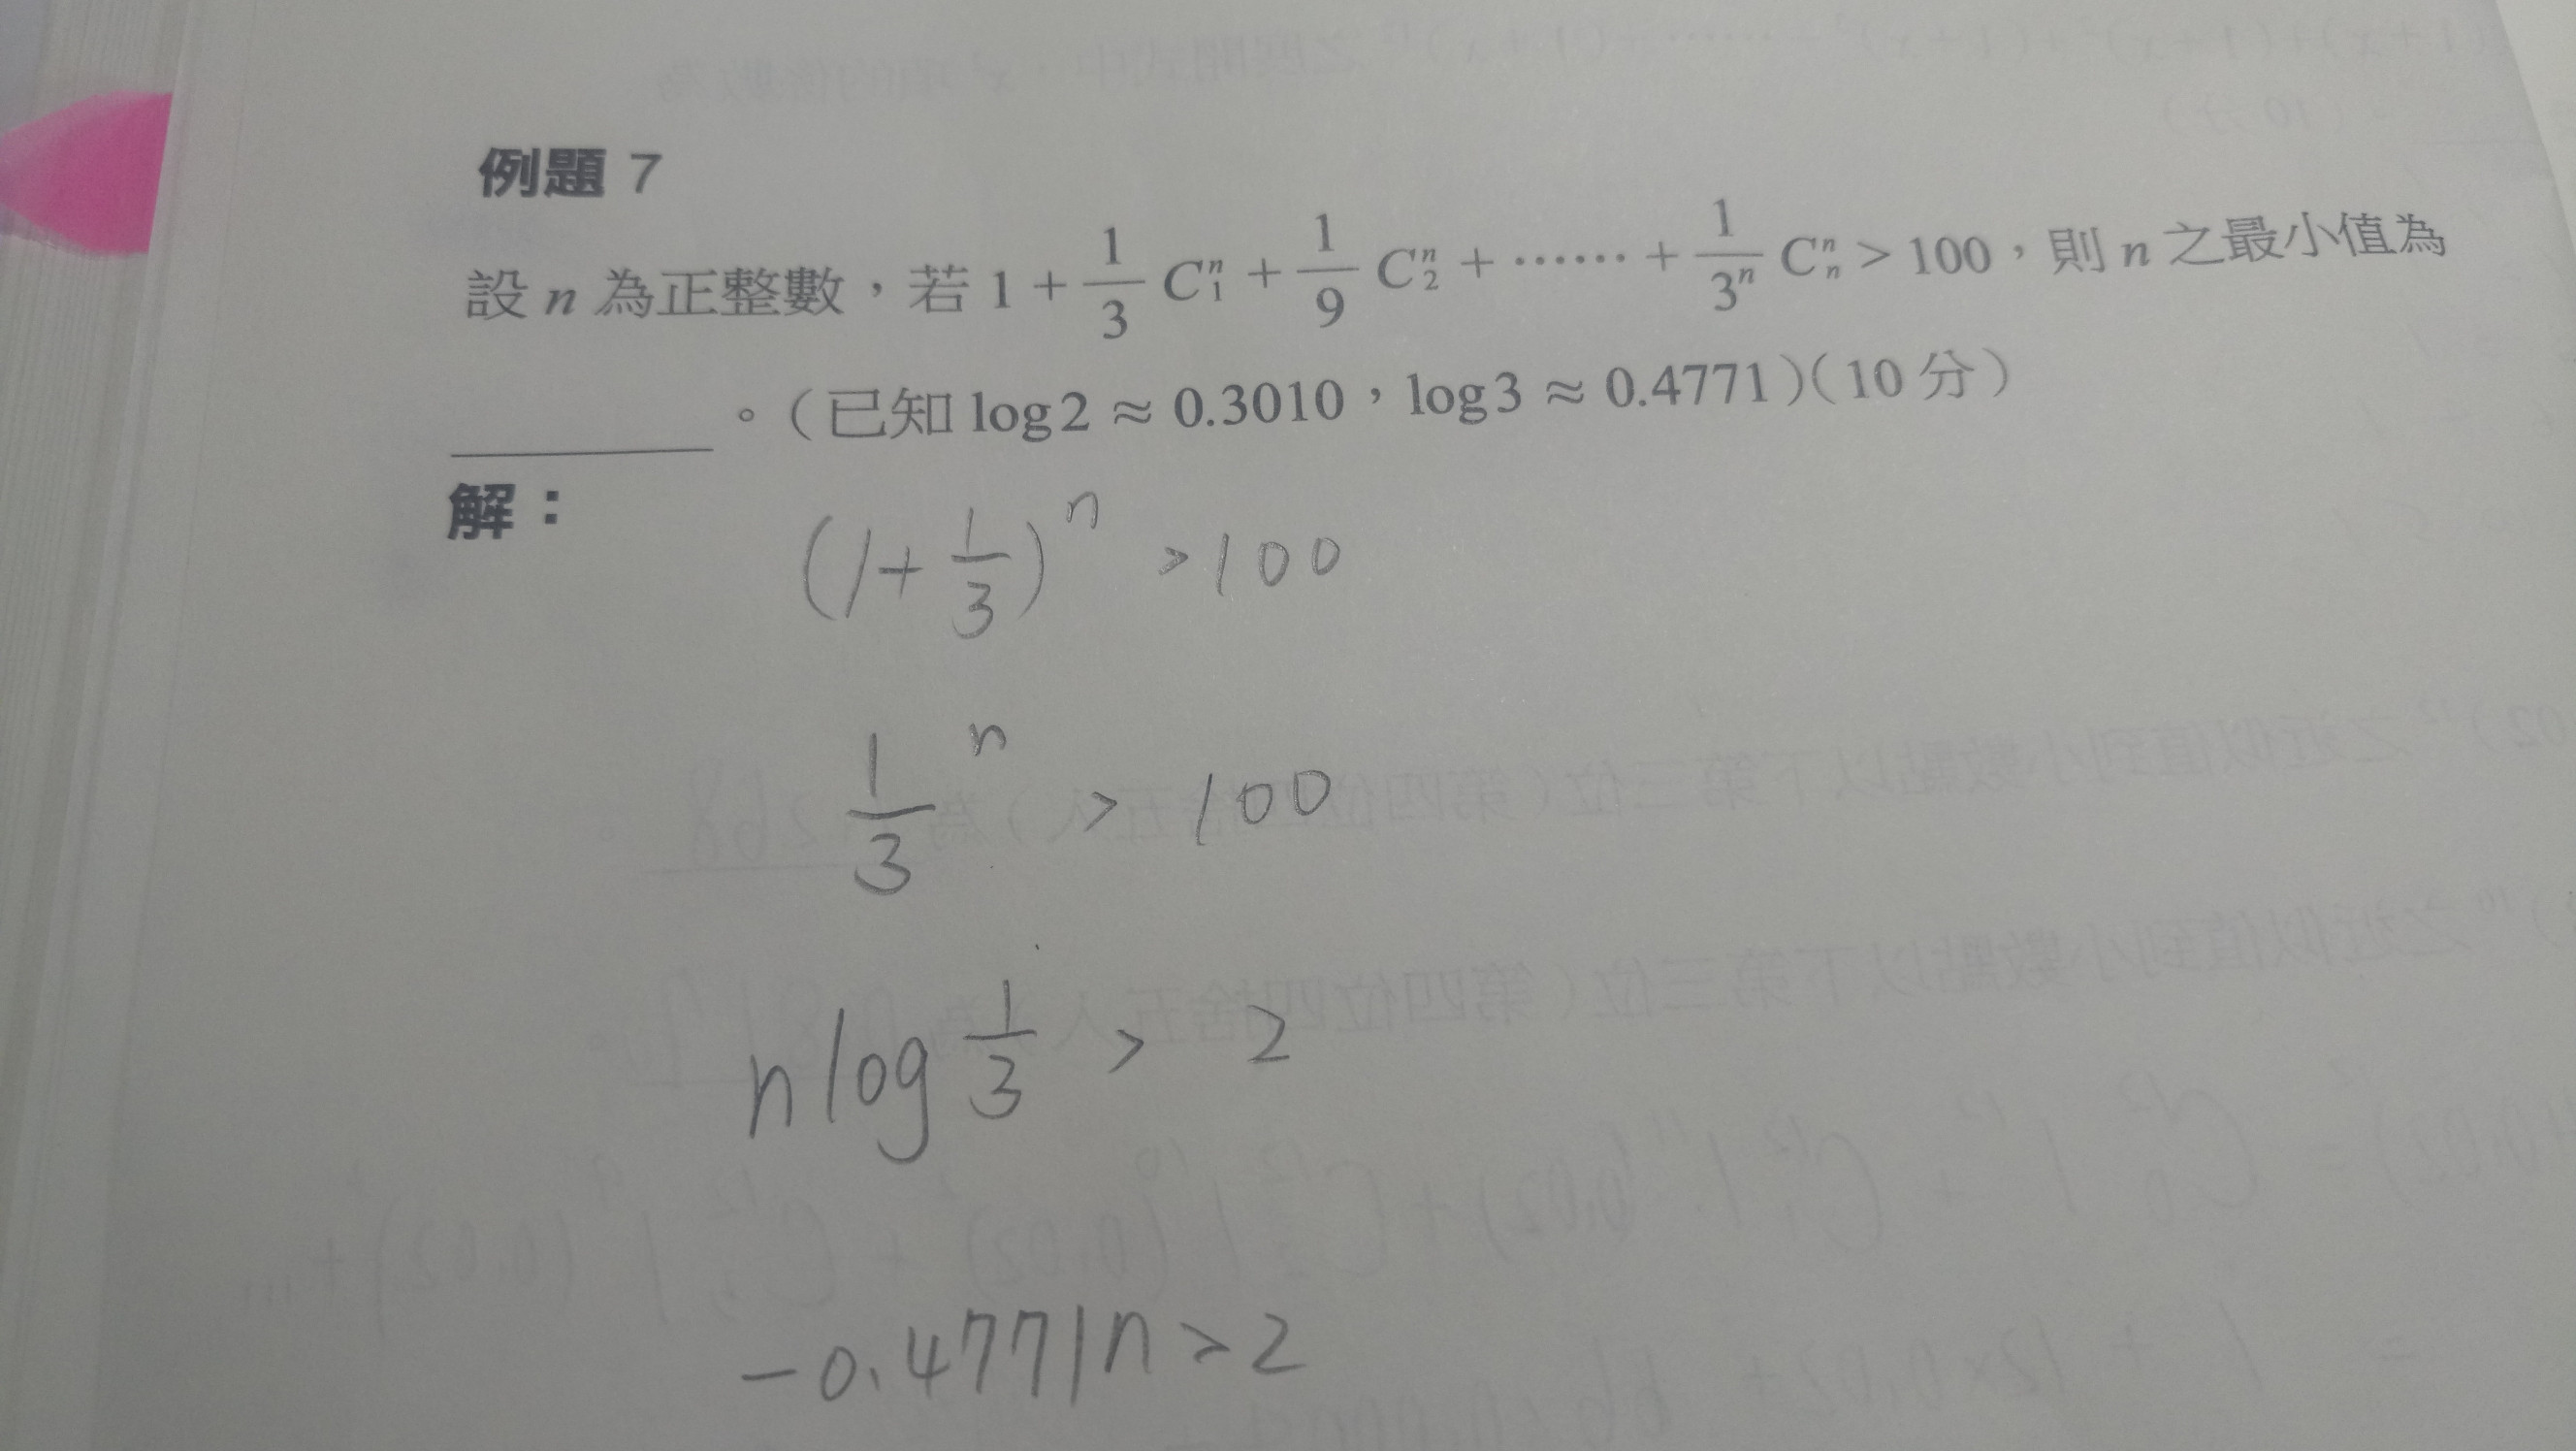 例題 7
設 n 為正整數，若 1 + 1/3 C₁ⁿ + 1/9 C₂ⁿ + …… + 1/3ⁿ Cₙⁿ > 100，則 n 之最小值為
______。（已知 log2 ≈ 0.3010，log3 ≈ 0.4771）（10 分）
解：
(1 + 1/3)ⁿ > 100
1/3 ⁿ > 100
n log 1/3 > 2
−0.4771n > 2